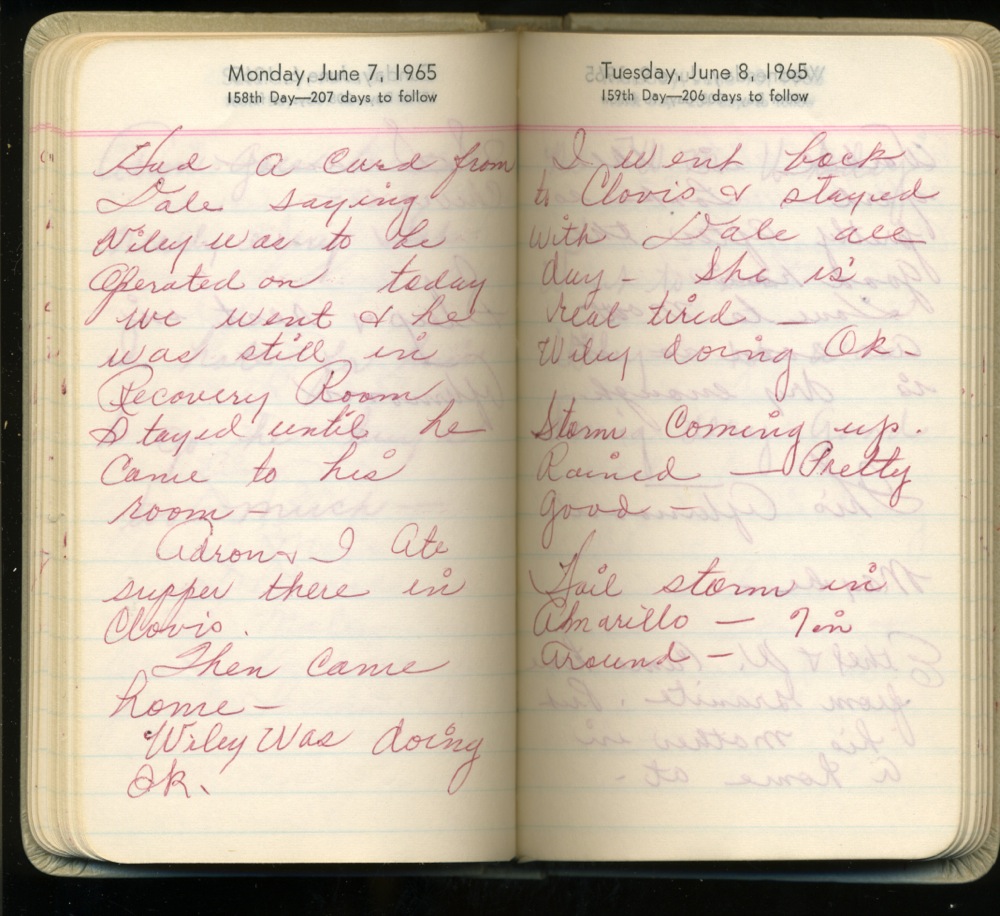 Monday, June 7, 1965
158th Day—207 days to follow
Had a card from
Dale saying
Wiley was to be
Operated on today
we went & he
was still in
Recovery Room
Stayed until he
came to his
room –
Adron & I Ate
supper there in
Clovis.
Then came
home –
Wiley Was doing
ok.
Tuesday, June 8, 1965
159th Day—206 days to follow
I went back
to Clovis & stayed
with Dale all
day – She is
real tired –
Wiley doing Ok –
Storm coming up.
Rained — Pretty
good –
Hail storm in
Amarillo — 7 in
around –